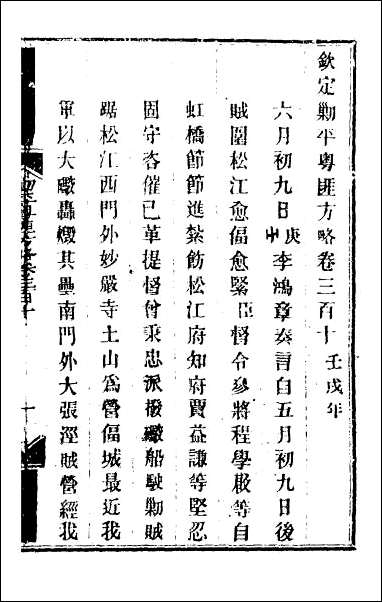 欽定勦平粵匪方略卷三百十 壬戌年
六月初九日庚午李鴻章奏言自五月初九日後
賊圍松江愈偪愈緊臣督令參將程學啟等自
虹橋節節進紮飭松江府知府賈益謙等堅忍
固守咨催已革提督曾秉忠派撥礮船駛勦賊
踞松江西門外妙嚴寺土山爲營偪城最近我
軍以大礮轟燬其壘南門外大張涇賊營經我